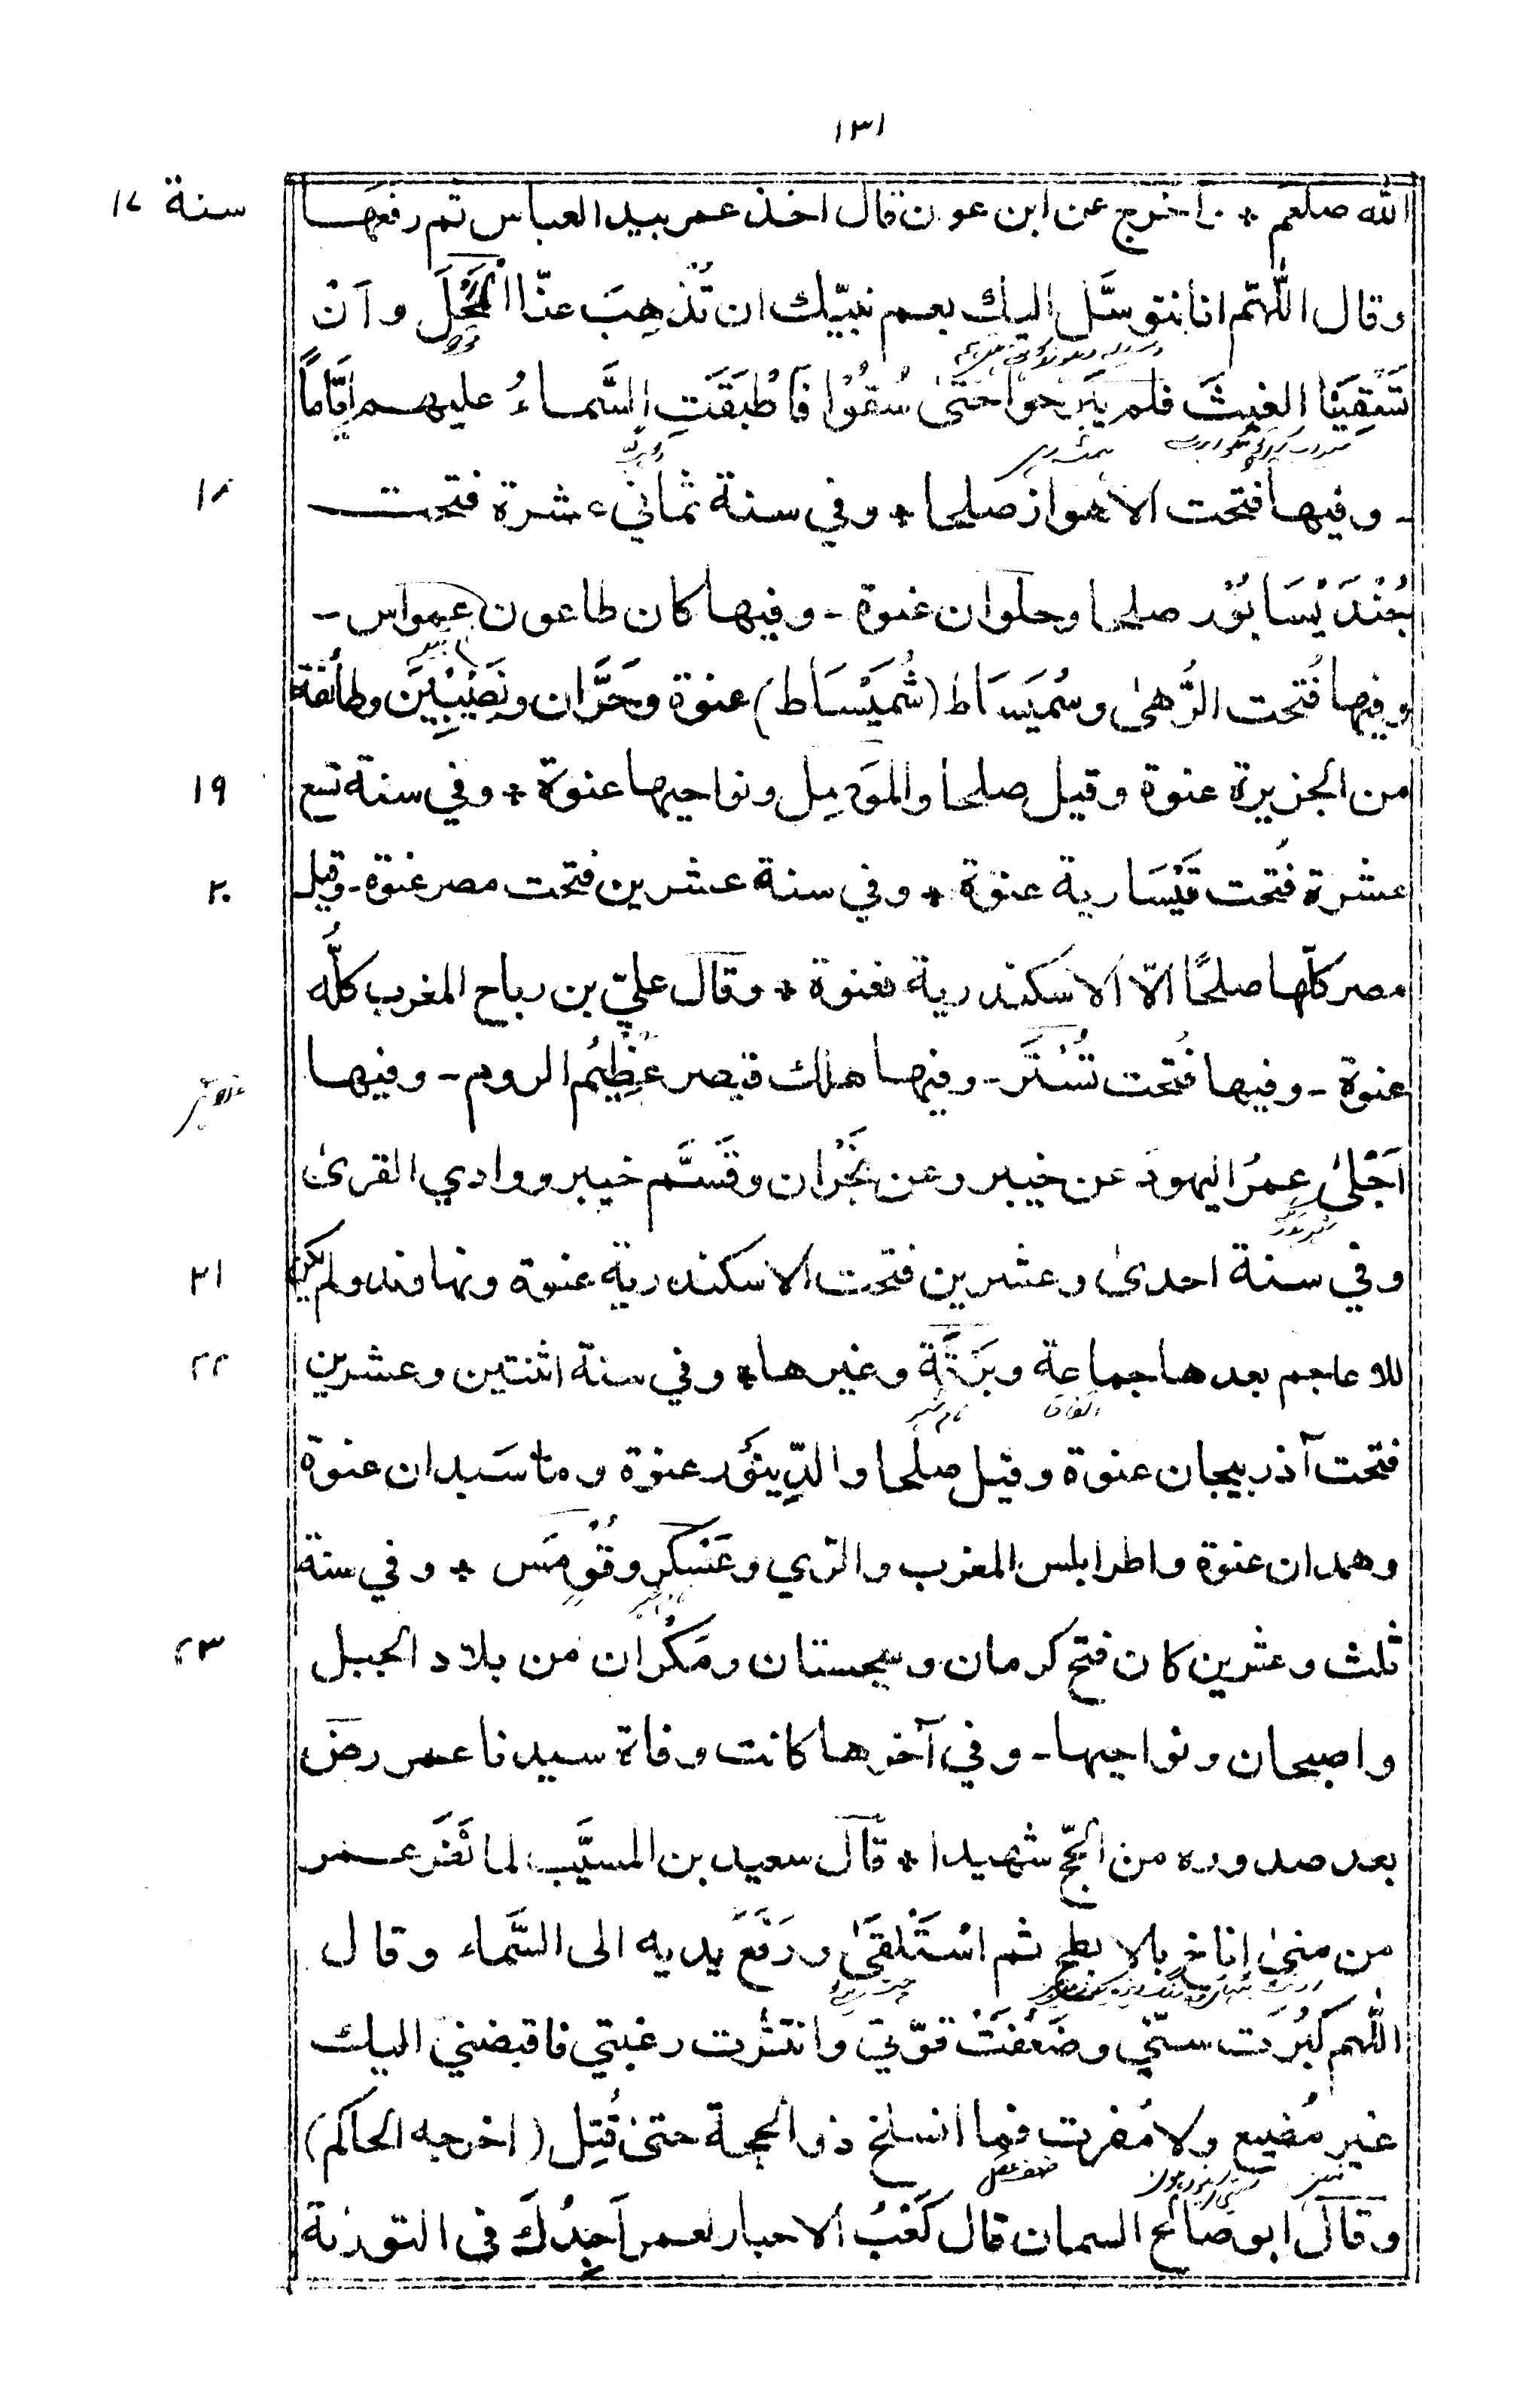 ١٣١
سنة ١٧
الله صلعم * واخرج عن ابن عون قال اخذ عمر بيد العباس ثم رفعها
وقال اللّٰهم انا نتوسَّل اليك بعم نبيّك ان تُذهِبَ عنّا المَحْلَ وأن
تَسْقِيَنَا الغيثَ فلم يَبرحوا حتى سُقُوْا فَاَطْبَقَتِ السَّماءُ عليهم ايَّاماً
١٨
- وفيها فتحت الاهواز صلحا * وفي سنة ثماني عشرة فتحت
جُنْدَيْسَابُوْر صلحا وحلوان عنوة - وفيها كان طاعون عمواس -
وفيها فُتحت الرُّهىٰ وسُمَيسَاط (شُمَيْسَاط) عنوة وحَرَّان ونَصِيْبِيْن وطائفة
١٩
من الجزيرة عنوة وقيل صلحا والمَوصِل ونواحيها عنوة * وفي سنة تسع
٢٠
عشرة فُتحت قَيْسَارية عنوة * وفي سنة عشرين فتحت مصر عنوة - وقيل
مصر كلّها صلحًا الّا الاسكندرية فعنوة * وقال عليّ بن رباح المغرب كلُّه
عنوة - وفيها فُتحت تُسْتَر - وفيها هلك قيصر عَظِيْمُ الروم - وفيها
اَجْلىٰ عمرُ اليهودَ عن خيبر وعن نَجْران وقَسَّم خيبر ووادي القرىٰ
٢١
وفي سنة احدىٰ وعشرين فتحت الاسكندرية عنوة ونهاوند ولم يكن
٢٢
للاعاجم بعدها جماعة وبَرْقَة وغيرها * وفي سنة اثنتين وعشرين
فتحت آذربيجان عنوة وقيل صلحا والدِّينَوَر عنوة وماسَبذان عنوة
وهمدان عنوة واطرابلس المغرب والرّي وعَسْكر وقُوْمَس * وفي سنة
٢٣
ثلث وعشرين كان فتح كرمان وسجستان ومَكْران من بلاد الجبل
واصبهان ونواحيها - وفي آخرها كانت وفاة سيدنا عمر رضؔ
بعد صدوره من الحجّ شهيدا * قال سعيد بن المسيَّب لما نَفَرَ عمر
من منىٰ اناخ بالابطح ثم اسْتَلْقَىٰ ورَفَعَ يديه الى السَّماء وقال
اللّٰهم كَبُرَت سنّي وضَعُفَتْ قوّتي وانتشرت رغبتي فاقبضني اليك
غير مُضيع ولا مُفرِت فما انسلخ ذو الحجة حتىٰ قُتِل (اخرجه الحاكم)
وقال ابو صالح السمان قال كَعْبُ الاحبار لعمر اَجِدُكَ في التورٰىة